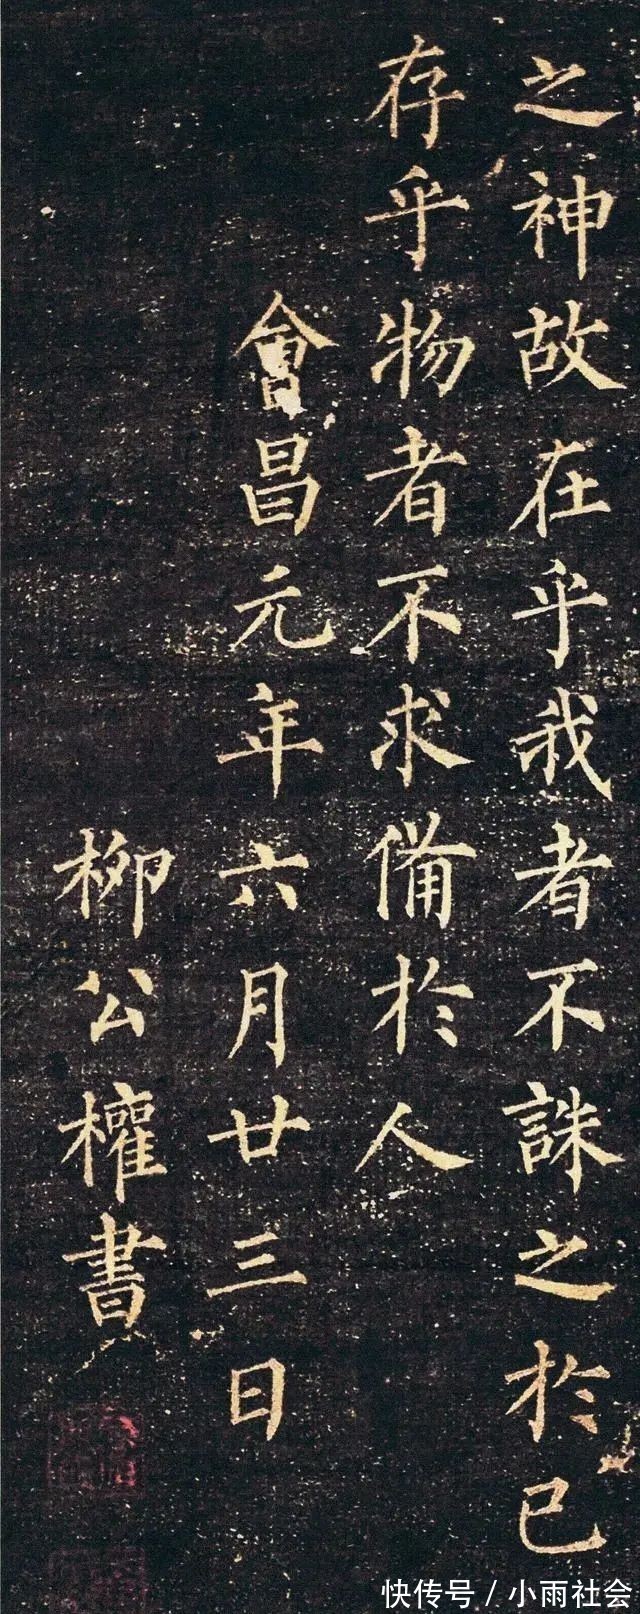 之神故在乎我者不誅之於已
存乎物者不求備於人
會昌元年六月廿三日
柳公權書
快传号 / 小雨社会